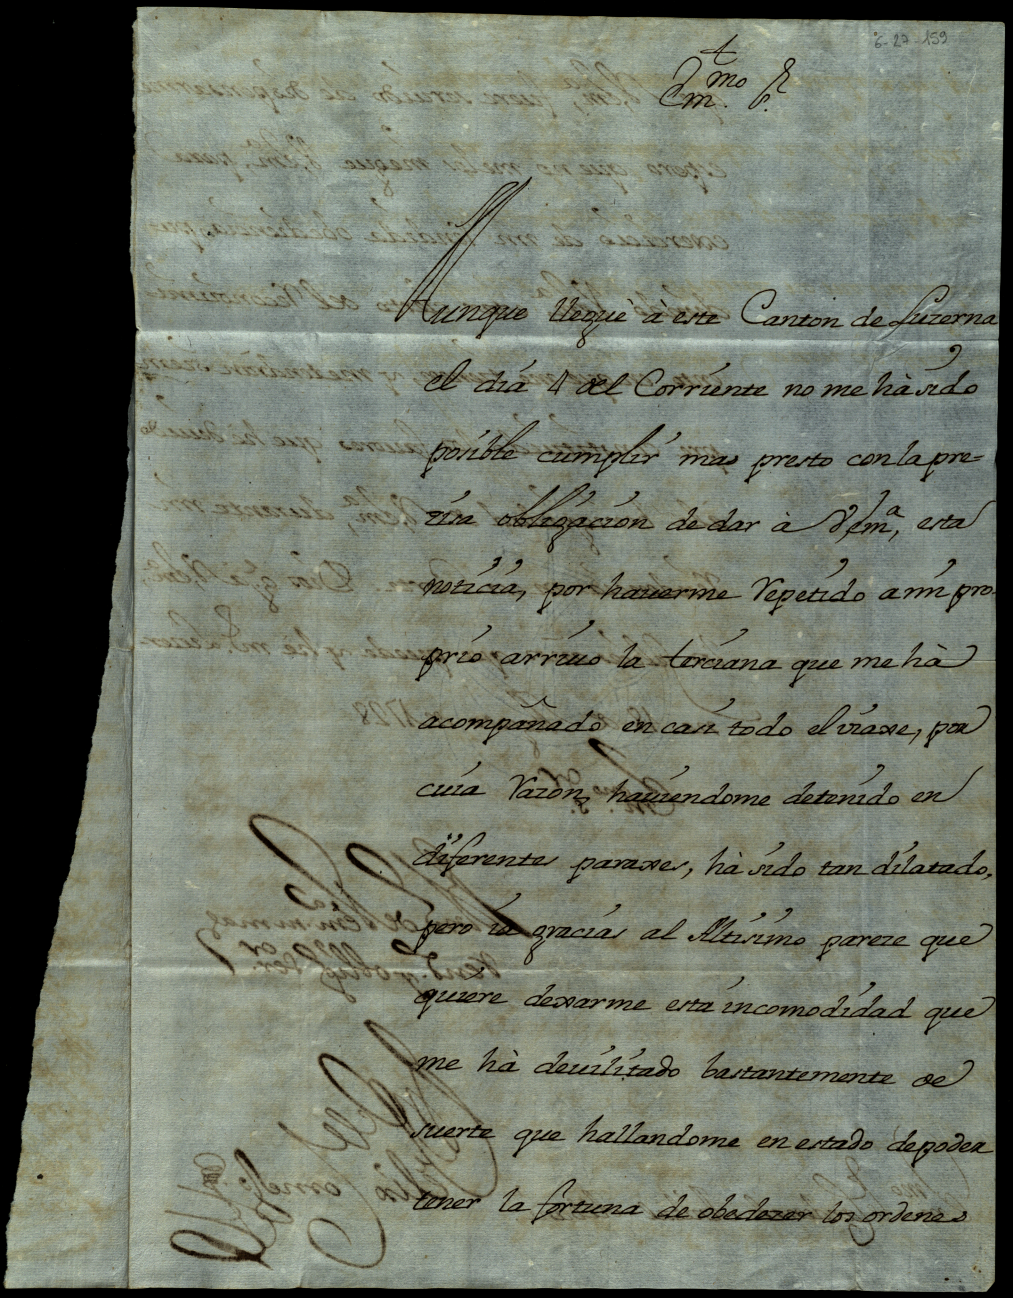 6-27-159
Em.mo S.r
Aunque lleguè à este Canton de Luzerna
el dia 4 del Corriente no me hà sido
posible cumplir mas presto con la pre=
zisa obligacion de dar à VEm.a, esta
noticia, por hauerme repetido a mi pro-
prio arriuo la terciana que me hà
acompañado en casi todo el viaxe, por
cuia razon, hauiendome detenido en
diferentes paraxes, hà sido tan dilatado,
pero ia gracias al Altisimo pareze que
quiere dexarme esta incomodidad que
me hà deuilitado bastantemente de
suerte que hallandome en estado de poder
tener la fortuna de obedezer los ordenes